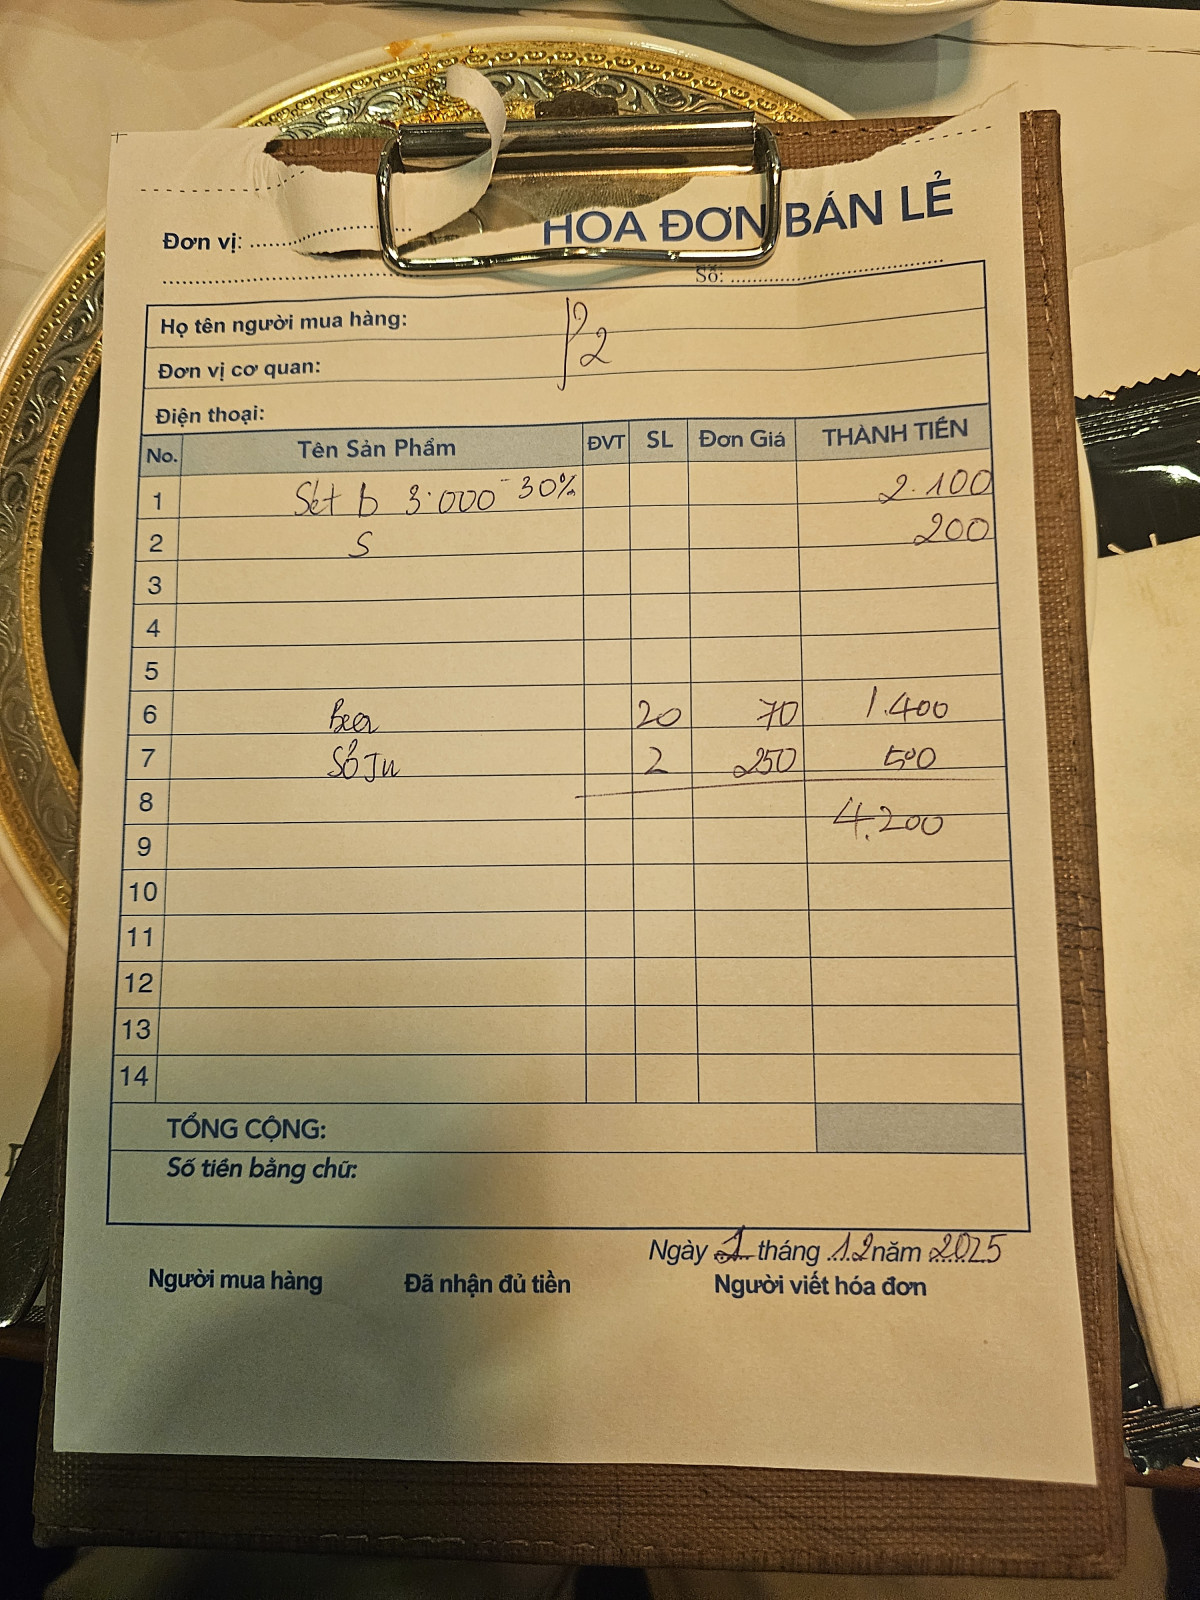 HÓA ĐƠN BÁN LẺ
Đơn vị:
Số:
Họ tên người mua hàng:
P2
Đơn vị cơ quan:
Điện thoại:
No. Tên Sản Phẩm ĐVT SL Đơn Giá THÀNH TIỀN
1 Set D 3.000 -30% 2.100
2 S 200
3
4
5
6 Beer 20 70 1.400
7 Sô Ju 2 250 500
8
4.200
9
10
11
12
13
14
TỔNG CỘNG:
Số tiền bằng chữ:
Ngày 1 tháng 12 năm 2025
Người mua hàng Đã nhận đủ tiền Người viết hóa đơn